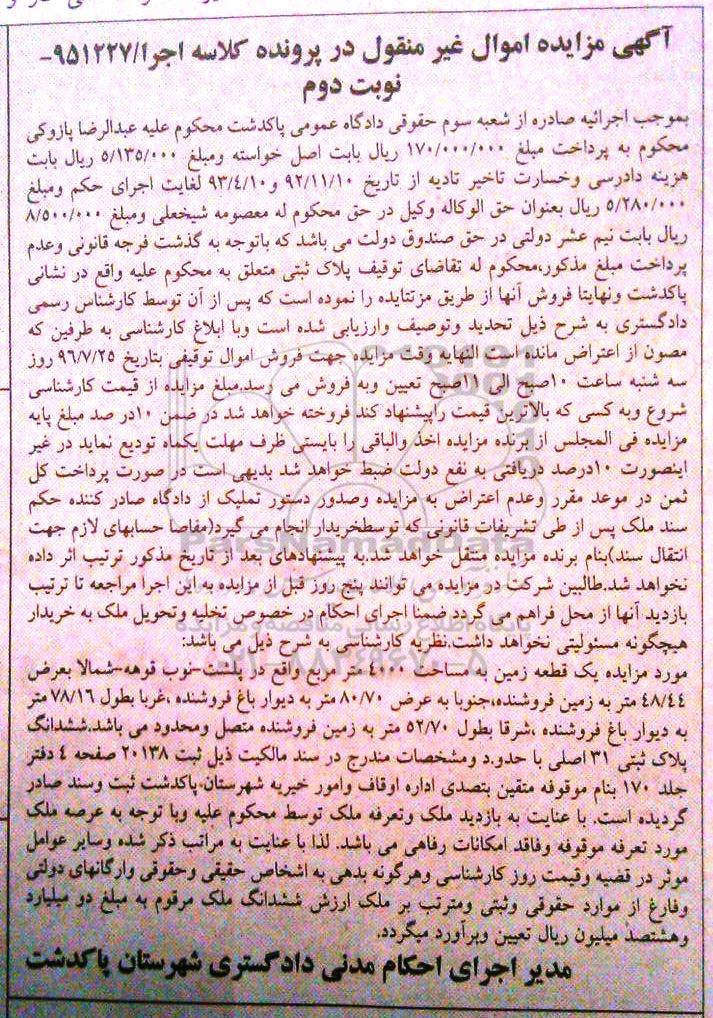 آگهی مزایده اموال غیر منقول در پرونده کلاسه اجرا/۹۵۱۲۲۷-
نوبت دوم
بموجب اجرائیه صادره از شعبه سوم حقوقی دادگاه عمومی پاکدشت محکوم علیه عبدالرضا پازوکی
محکوم به پرداخت مبلغ ۱۷۰/۰۰۰/۰۰۰ ریال بابت اصل خواسته ومبلغ ۵/۱۳۵/۰۰۰ ریال بابت
هزینه دادرسی وخسارت تاخیر تادیه از تاریخ ۹۲/۱۱/۱۰ و ۹۳/۴/۱۰ لغایت اجرای حکم ومبلغ
۵/۲۸۰/۰۰۰ ریال بعنوان حق الوکاله وکیل در حق محکوم له معصومه شیخعلی ومبلغ ۸/۵۰۰/۰۰۰
ریال بابت نیم عشر دولتی در حق صندوق دولت می باشد که باتوجه به گذشت فرجه قانونی وعدم
پرداخت مبلغ مذکور،محکوم له تقاضای توقیف پلاک ثبتی متعلق به محکوم علیه واقع در نشانی
پاکدشت ونهایتا فروش آنها از طریق مزتتایده را نموده است که پس از آن توسط کارشناس رسمی
دادگستری به شرح ذیل تحدید وتوصیف وارزیابی شده است وبا ابلاغ کارشناسی به طرفین که
مصون از اعتراض مانده است النهایه وقت مزایده جهت فروش اموال توقیفی بتاریخ ۹۶/۷/۲۵ روز
سه شنبه ساعت ۱۰صبح الی ۱۱صبح تعیین وبه فروش می رسد.مبلغ مزایده از قیمت کارشناسی
شروع وبه کسی که بالاترین قیمت راپیشنهاد کند فروخته خواهد شد در ضمن ۱۰در صد مبلغ پایه
مزایده فی المجلس از برنده مزایده اخذ والباقی را بایستی ظرف مهلت یکماه تودیع نماید در غیر
اینصورت ۱۰درصد دریافتی به نفع دولت ضبط خواهد شد بدیهی است در صورت پرداخت کل
ثمن در موعد مقرر وعدم اعتراض به مزایده وصدور دستور تملیک از دادگاه صادر کننده حکم
سند ملک پس از طی تشریفات قانونی که توسطخریدار انجام می گیرد(مفاصا حسابهای لازم جهت
انتقال سند)بنام برنده مزایده منتقل خواهد شد.به پیشنهادهای بعد از تاریخ مذکور ترتیب اثر داده
نخواهد شد.طالبین شرکت در مزایده می توانند پنج روز قبل از مزایده به این اجرا مراجعه تا ترتیب
بازدید آنها از محل فراهم می گردد ضمنا اجرای احکام در خصوص تخلیه وتحویل ملک به خریدار
هیچگونه مسئولیتی نخواهد داشت.نظریه کارشناسی به شرح ذیل می باشد:
مورد مزایده یک قطعه زمین به مساحت ۴۱۰۰ متر مربع واقع در پلشت-نوب قوهه-شمالا بعرض
۴۸/۴۴ متر به زمین فروشنده،جنوبا به عرض ۸۰/۷۰ متر به دیوار باغ فروشنده ،غربا بطول ۷۸/۱۶ متر
به دیوار باغ فروشنده ،شرقا بطول ۵۲/۷۰ متر به زمین فروشنده متصل ومحدود می باشد.ششدانگ
پلاک ثبتی ۳۱ اصلی با حدو.د ومشخصات مندرج در سند مالکیت ذیل ثبت ۲۰۱۳۸ صفحه ۴ دفتر
جلد ۱۷۰ بنام موقوفه متقین بتصدی اداره اوقاف وامور خیریه شهرستان-پاکدشت ثبت وسند صادر
گردیده است. با عنایت به بازدید ملک وتعرفه ملک توسط محکوم علیه وبا توجه به عرصه ملک
مورد تعرفه موقوفه وفاقد امکانات رفاهی می باشد. لذا با عنایت به مراتب ذکر شده وسایر عوامل
موثر در قضیه وقیمت روز کارشناسی وهرگونه بدهی به اشخاص حقیقی وحقوقی وارگانهای دولتی
وفارغ از موارد حقوقی وثبتی ومترتب بر ملک ارزش ششدانگ ملک مرقوم به مبلغ دو میلیارد
وهشتصد میلیون ریال تعیین وبرآورد میگردد.
مدیر اجرای احکام مدنی دادگستری شهرستان پاکدشت
ParsNamadData
پایگاه اطلاع رسانی مناقصه و مزایده
۰۲۱-۸۸۳۴۹۶۷۰-۵